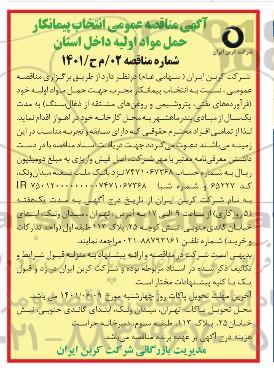 آگهی مناقصه عمومی انتخاب پیمانکار
حمل مواد اولیه داخل استان
شرکت کربن ایران
شماره مناقصه ۰۲/م ح/۱۴۰۱
شرکت کربن ایران (سهامی عام) در نظر دارد از طریق برگزاری مناقصه
عمومی، نسبت به انتخاب پیمانکار مجرب جهت حمل مواد اولیه خود
(فرآورده‌های نفتی، پتروشیمی و روغن‌های مشتقه از ذغال‌سنگ) به مدت
یک‌سال از مبادی بندر ماهشهر به محل کارخانه خود در اهواز اقدام نماید.
لذا از تمامی افراد محترم حقوقی که دارای سابقه و تجربه مناسب در این
زمینه می‌باشند دعوت می‌گردد جهت دریافت اسناد مناقصه با در دست
داشتن معرفی‌نامه معتبر با مهر شرکت، اصل فیش واریزی به مبلغ دومیلیون
ریال به شماره حساب نزد بانک ملت شعبه میدان ونک،
کد ۶۵۲۲۷ و شماره شبا IR
به نام شرکت کربن ایران از تاریخ درج آگهی به مدت یک‌هفته
(۵ روزکاری) از ساعت ۹ الی ۱۷ به آدرس: تهران، میدان ونک، ابتدای
خیابان گاندی جنوبی، نبش کوچه ۲۵، پلاک ۱۱۳، طبقه اول (واحد تدارکات
و خرید) شماره تلفن ۸۸۷۹۳۱۶۱-۰۲۱ مراجعه نمایند.
بدیهی است شرکت در مناقصه و ارائه پیشنهاد به منزله قبول شرایط و
تکالیف ذکر شده در اسناد مربوطه بوده و شرکت کربن ایران در رد و قبول
یک یا کلیه پیشنهادات مختار است.
آخرین مهلت تحویل پاکات روز چهارشنبه مورخ ۱۴۰۱/۰۶/۰۹ می باشد.
محل تحویل پاکات: تهران، میدان ونک، ابتدای گاندی جنوبی، نبش
خیابان ۲۵، پلاک ۱۱۳، طبقه سوم، دبیرخانه حراست
هزینه درج آگهی بر عهده برنده مناقصه می‌باشد.
مدیریت بازرگانی شرکت کربن ایران